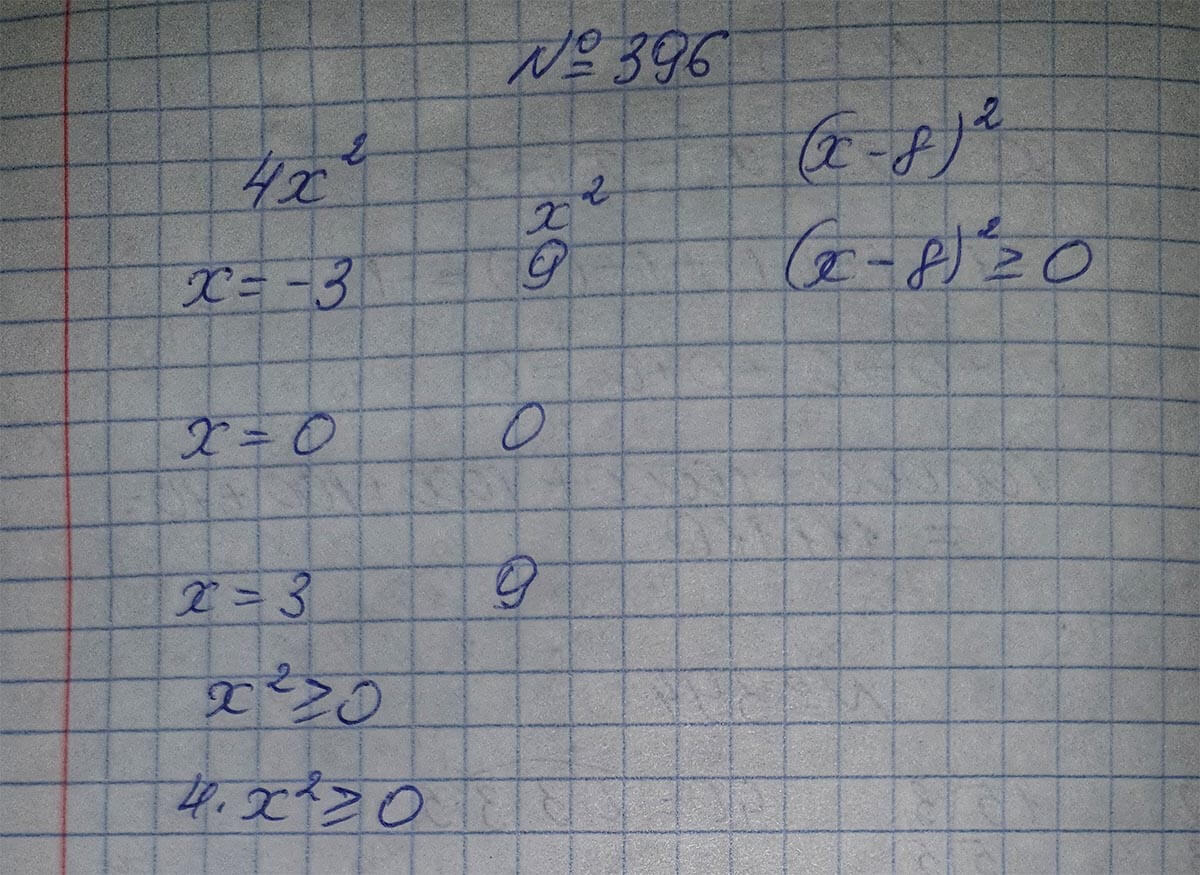 № 396
4x² x² (x-8)²
x = -3 9 (x-8)² ≥ 0
x = 0 0
x = 3 9
x² ≥ 0
4·x² ≥ 0